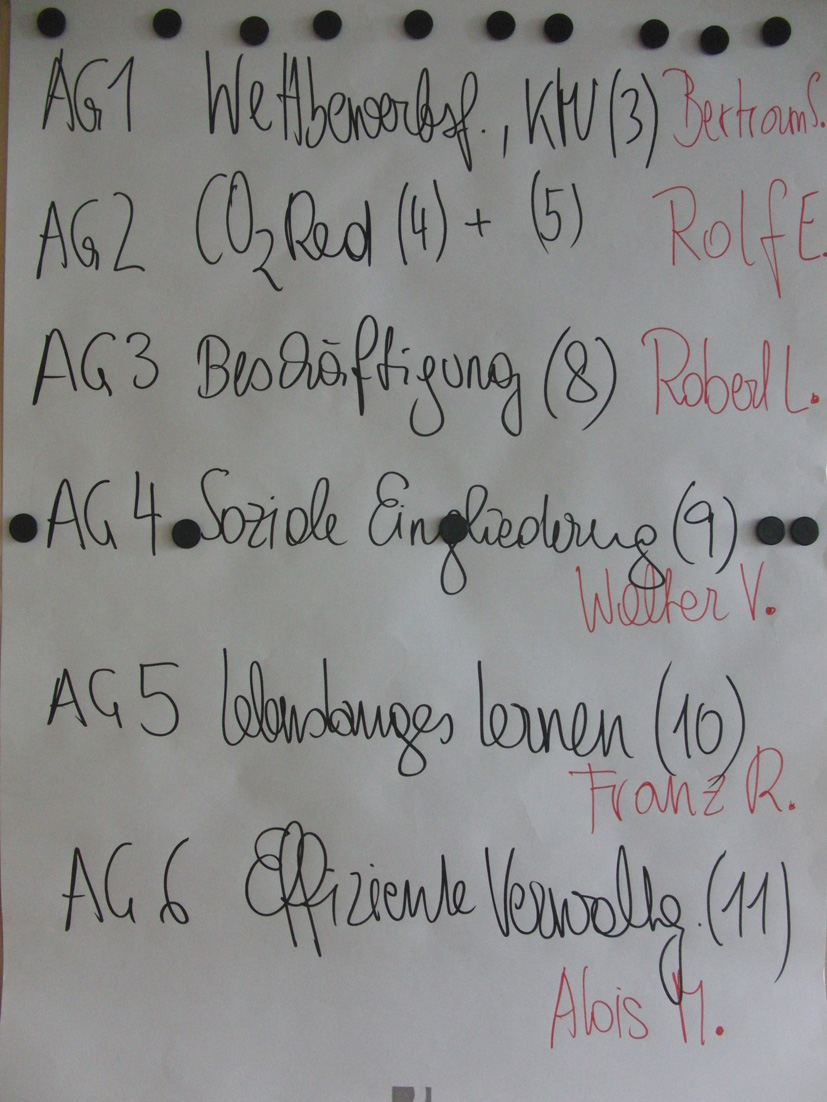 AG1 Wettbewerbsf., KMU (3) Bertram S.
AG2 CO₂ Red (4) + (5) Rolf E.
AG3 Beschäftigung (8) Robert L.
AG4 Soziale Eingliederung (9)
Walter V.
AG5 lebenslanges lernen (10)
Franz R.
AG6 Effiziente Verwaltg. (11)
Alois M.